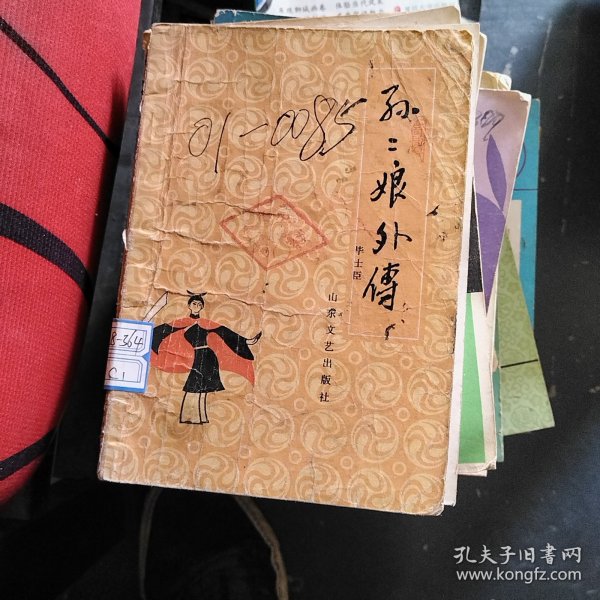 孙二娘外傳
毕士臣
山东文艺出版社
01-0085
8-364
C1
孔夫子旧书网
www.kongfz.com